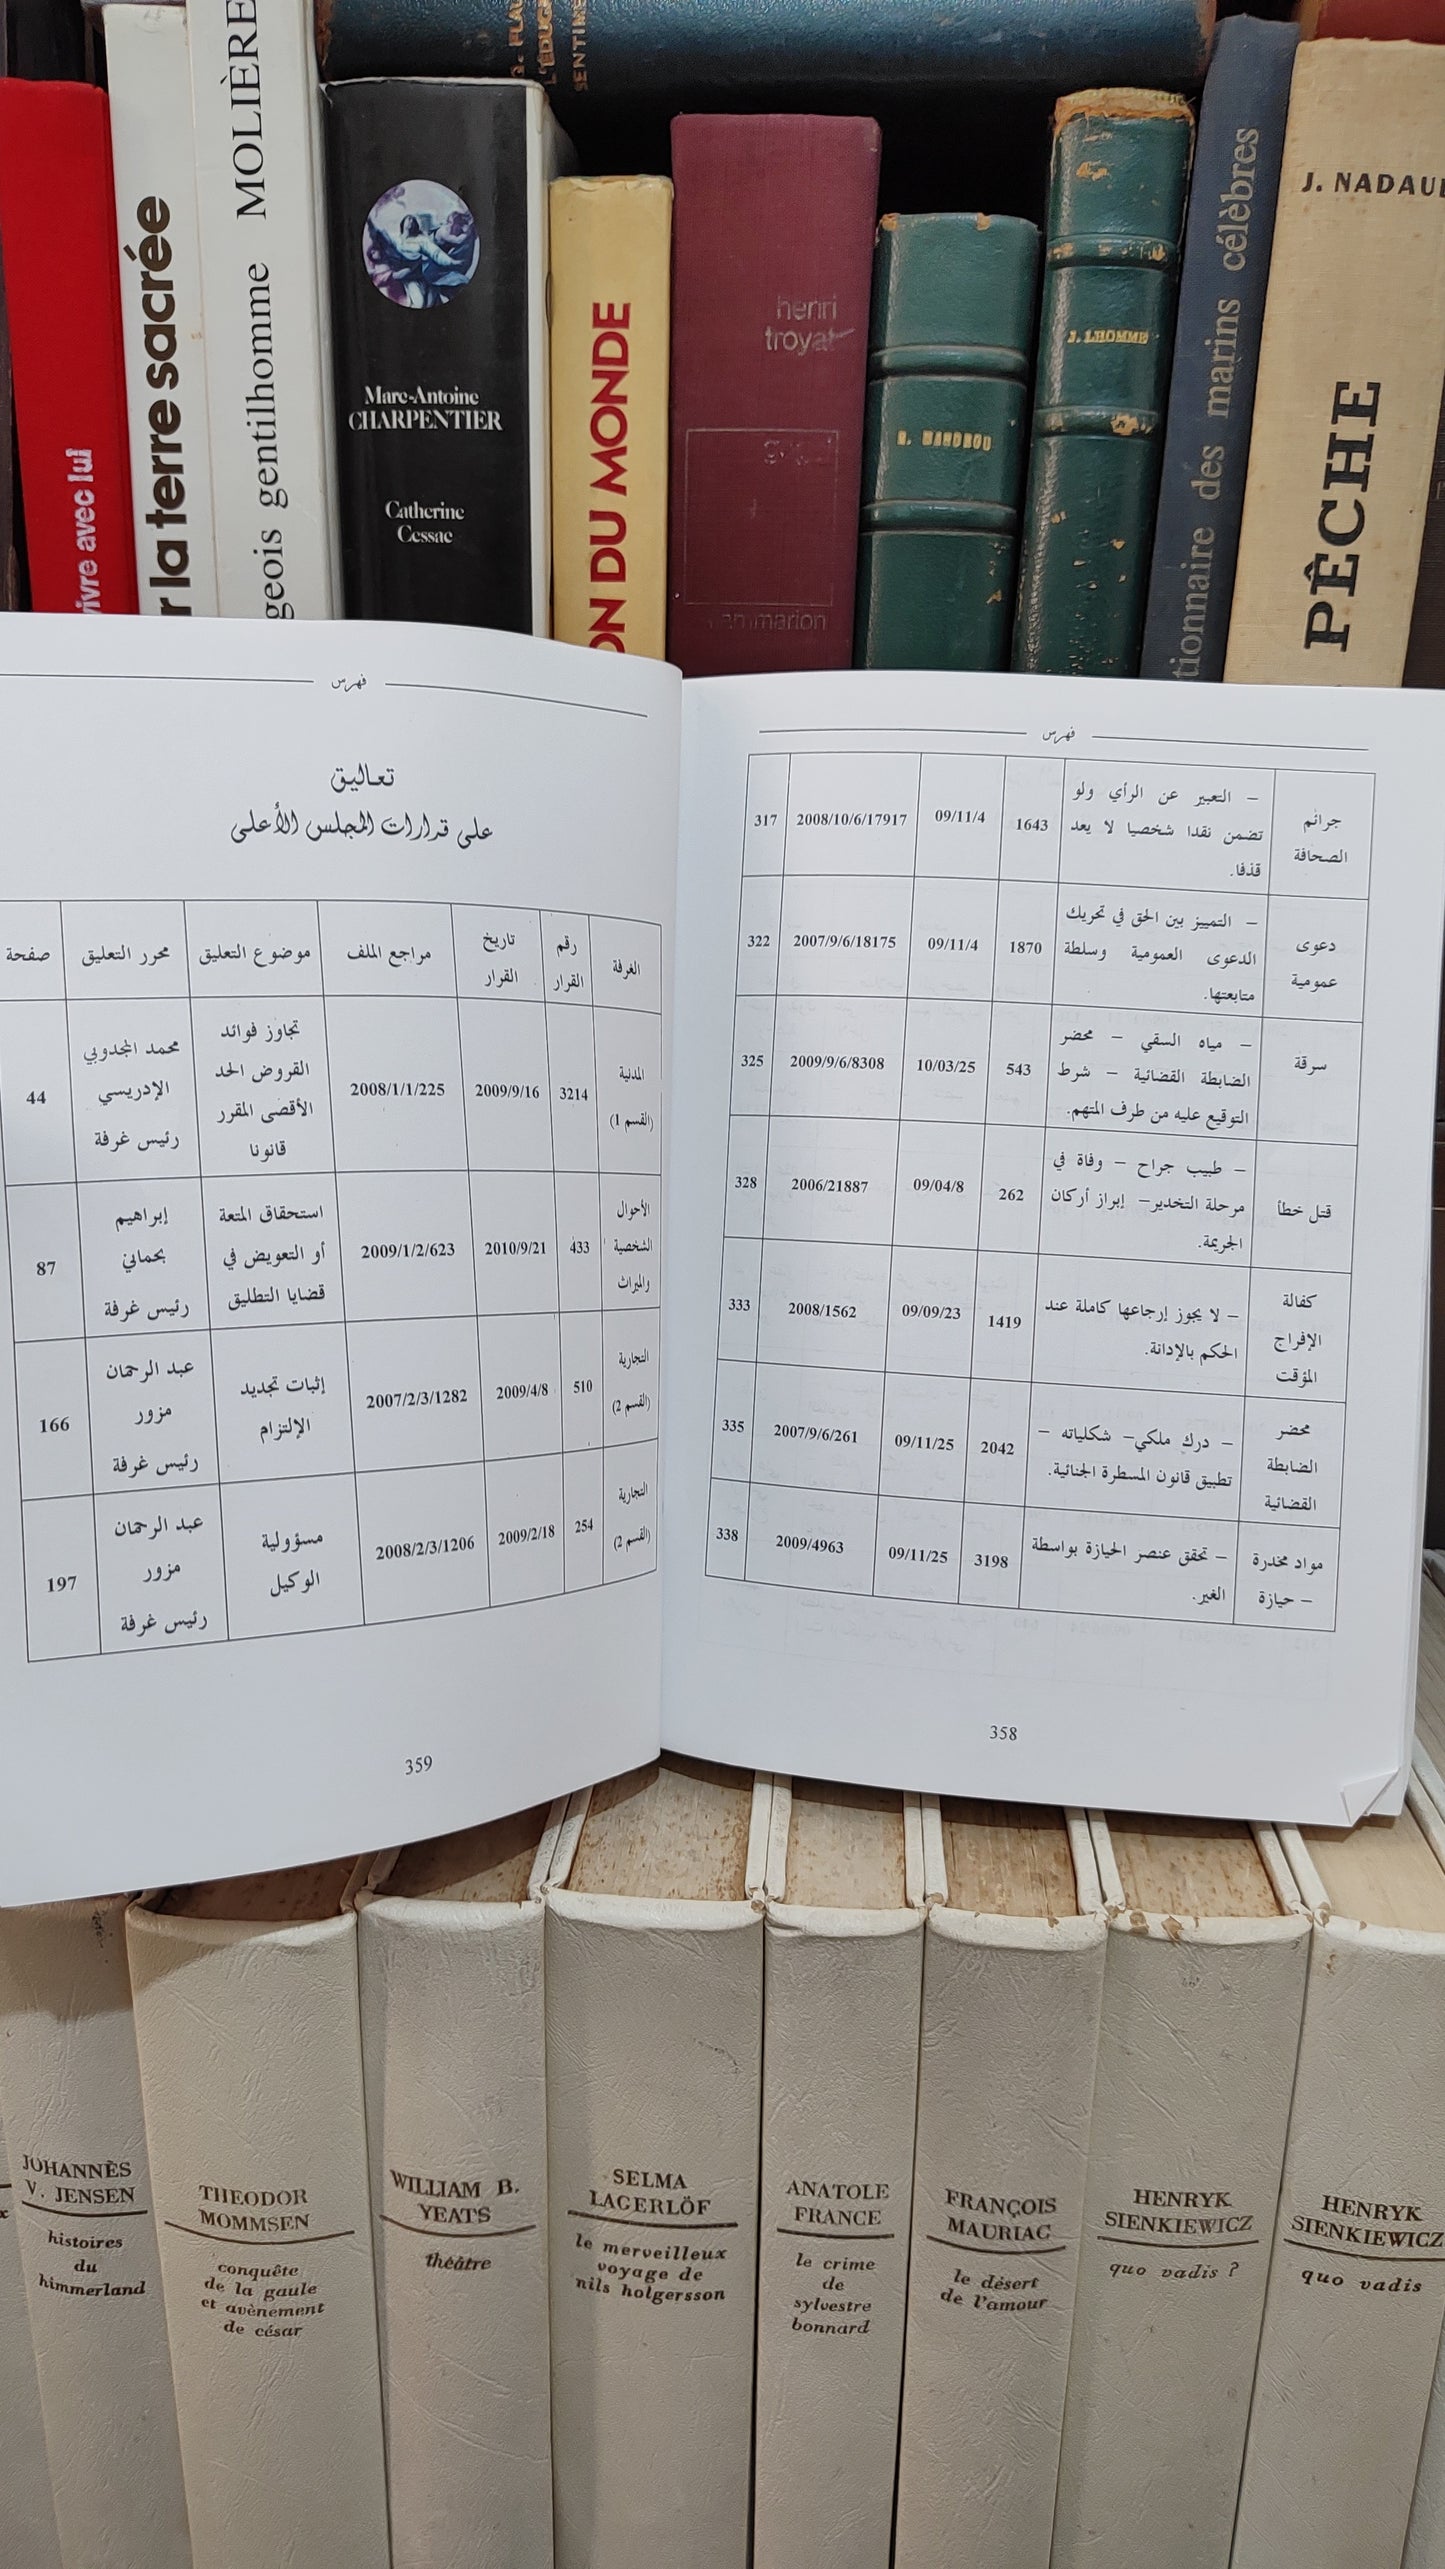 G. FLAU
L'ÉDUC
SENTIME
vivre avec lui
r la terre sacrée
geois gentilhomme MOLIÈRE
Marc-Antoine
CHARPENTIER
Catherine
Cessac
ON DU MONDE
henri
troyat
flammarion
J. LHOMME
tionnaire des marins célèbres
J. NADAUD
PÊCHE
فهرس
جرائم الصحافة
– التعبير عن الرأي ولو
تضمن نقدا شخصيا لا يعد
قذفا.
1643
09/11/4
2008/10/6/17917
317
دعوى عمومية
– التمييز بين الحق في تحريك
الدعوى العمومية وسلطة
متابعتها.
1870
09/11/4
2007/9/6/18175
322
سرقة
– مياه السقي – محضر
الضابطة القضائية – شرط
التوقيع عليه من طرف المتهم.
543
10/03/25
2009/9/6/8308
325
قتل خطأ
– طبيب جراح – وفاة في
مرحلة التخدير– إبراز أركان
الجريمة.
262
09/04/8
2006/21887
328
كفالة
الإفراج
المؤقت
– لا يجوز إرجاعها كاملة عند
الحكم بالإدانة.
1419
09/09/23
2008/1562
333
محضر
الضابطة
القضائية
– درك ملكي– شكلياته –
تطبيق قانون المسطرة الجنائية.
2042
09/11/25
2007/9/6/261
335
مواد مخدرة
– حيازة
– تحقق عنصر الحيازة بواسطة
الغير.
3198
09/11/25
2009/4963
338
358
فهرس
تعاليق
على قرارات المجلس الأعلى
الغرفة
رقم
القرار
تاريخ
القرار
مراجع الملف
موضوع التعليق
محرر التعليق
صفحة
المدنية
(القسم 1)
3214
2009/9/16
2008/1/1/225
تجاوز فوائد
القروض الحد
الأقصى المقرر
قانونا
محمد المجدوبي
الإدريسي
رئيس غرفة
44
الأحوال
الشخصية
والميراث
433
2010/9/21
2009/1/2/623
استحقاق المتعة
أو التعويض في
قضايا التطليق
إبراهيم
بحماني
رئيس غرفة
87
التجارية
(القسم 2)
510
2009/4/8
2007/2/3/1282
إثبات تجديد
الإلتزام
عبد الرحمان
مزور
رئيس غرفة
166
التجارية
(القسم 2)
254
2009/2/18
2008/2/3/1206
مسؤولية
الوكيل
عبد الرحمان
مزور
رئيس غرفة
197
359
JOHANNÈS
V. JENSEN
histoires
du
himmerland
THEODOR
MOMMSEN
conquête
de la gaule
et avènement
de césar
WILLIAM B.
YEATS
théâtre
SELMA
LAGERLÖF
le merveilleux
voyage de
nils holgersson
ANATOLE
FRANCE
le crime
de
sylvestre
bonnard
FRANÇOIS
MAURIAC
le désert
de l'amour
HENRYK
SIENKIEWICZ
quo vadis ?
HENRYK
SIENKIEWICZ
quo vadis